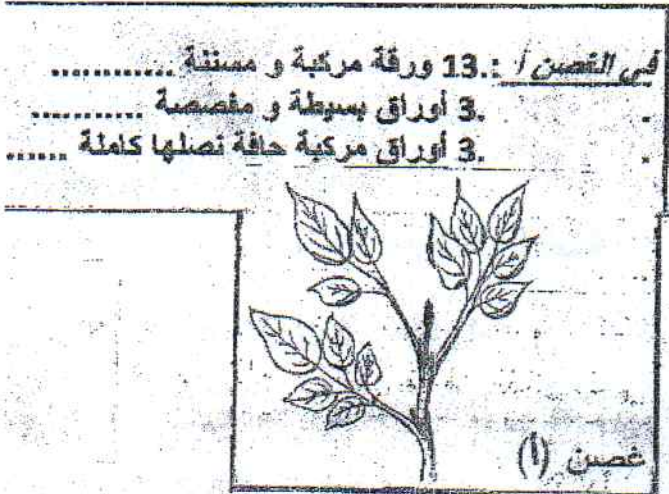 في الغصن أ : .13 ورقة مركبة و مسننة ............
. .3 أوراق بسيطة و مفصصة ............
. .3 أوراق مركبة حافة نصلها كاملة ......
غصن (أ)